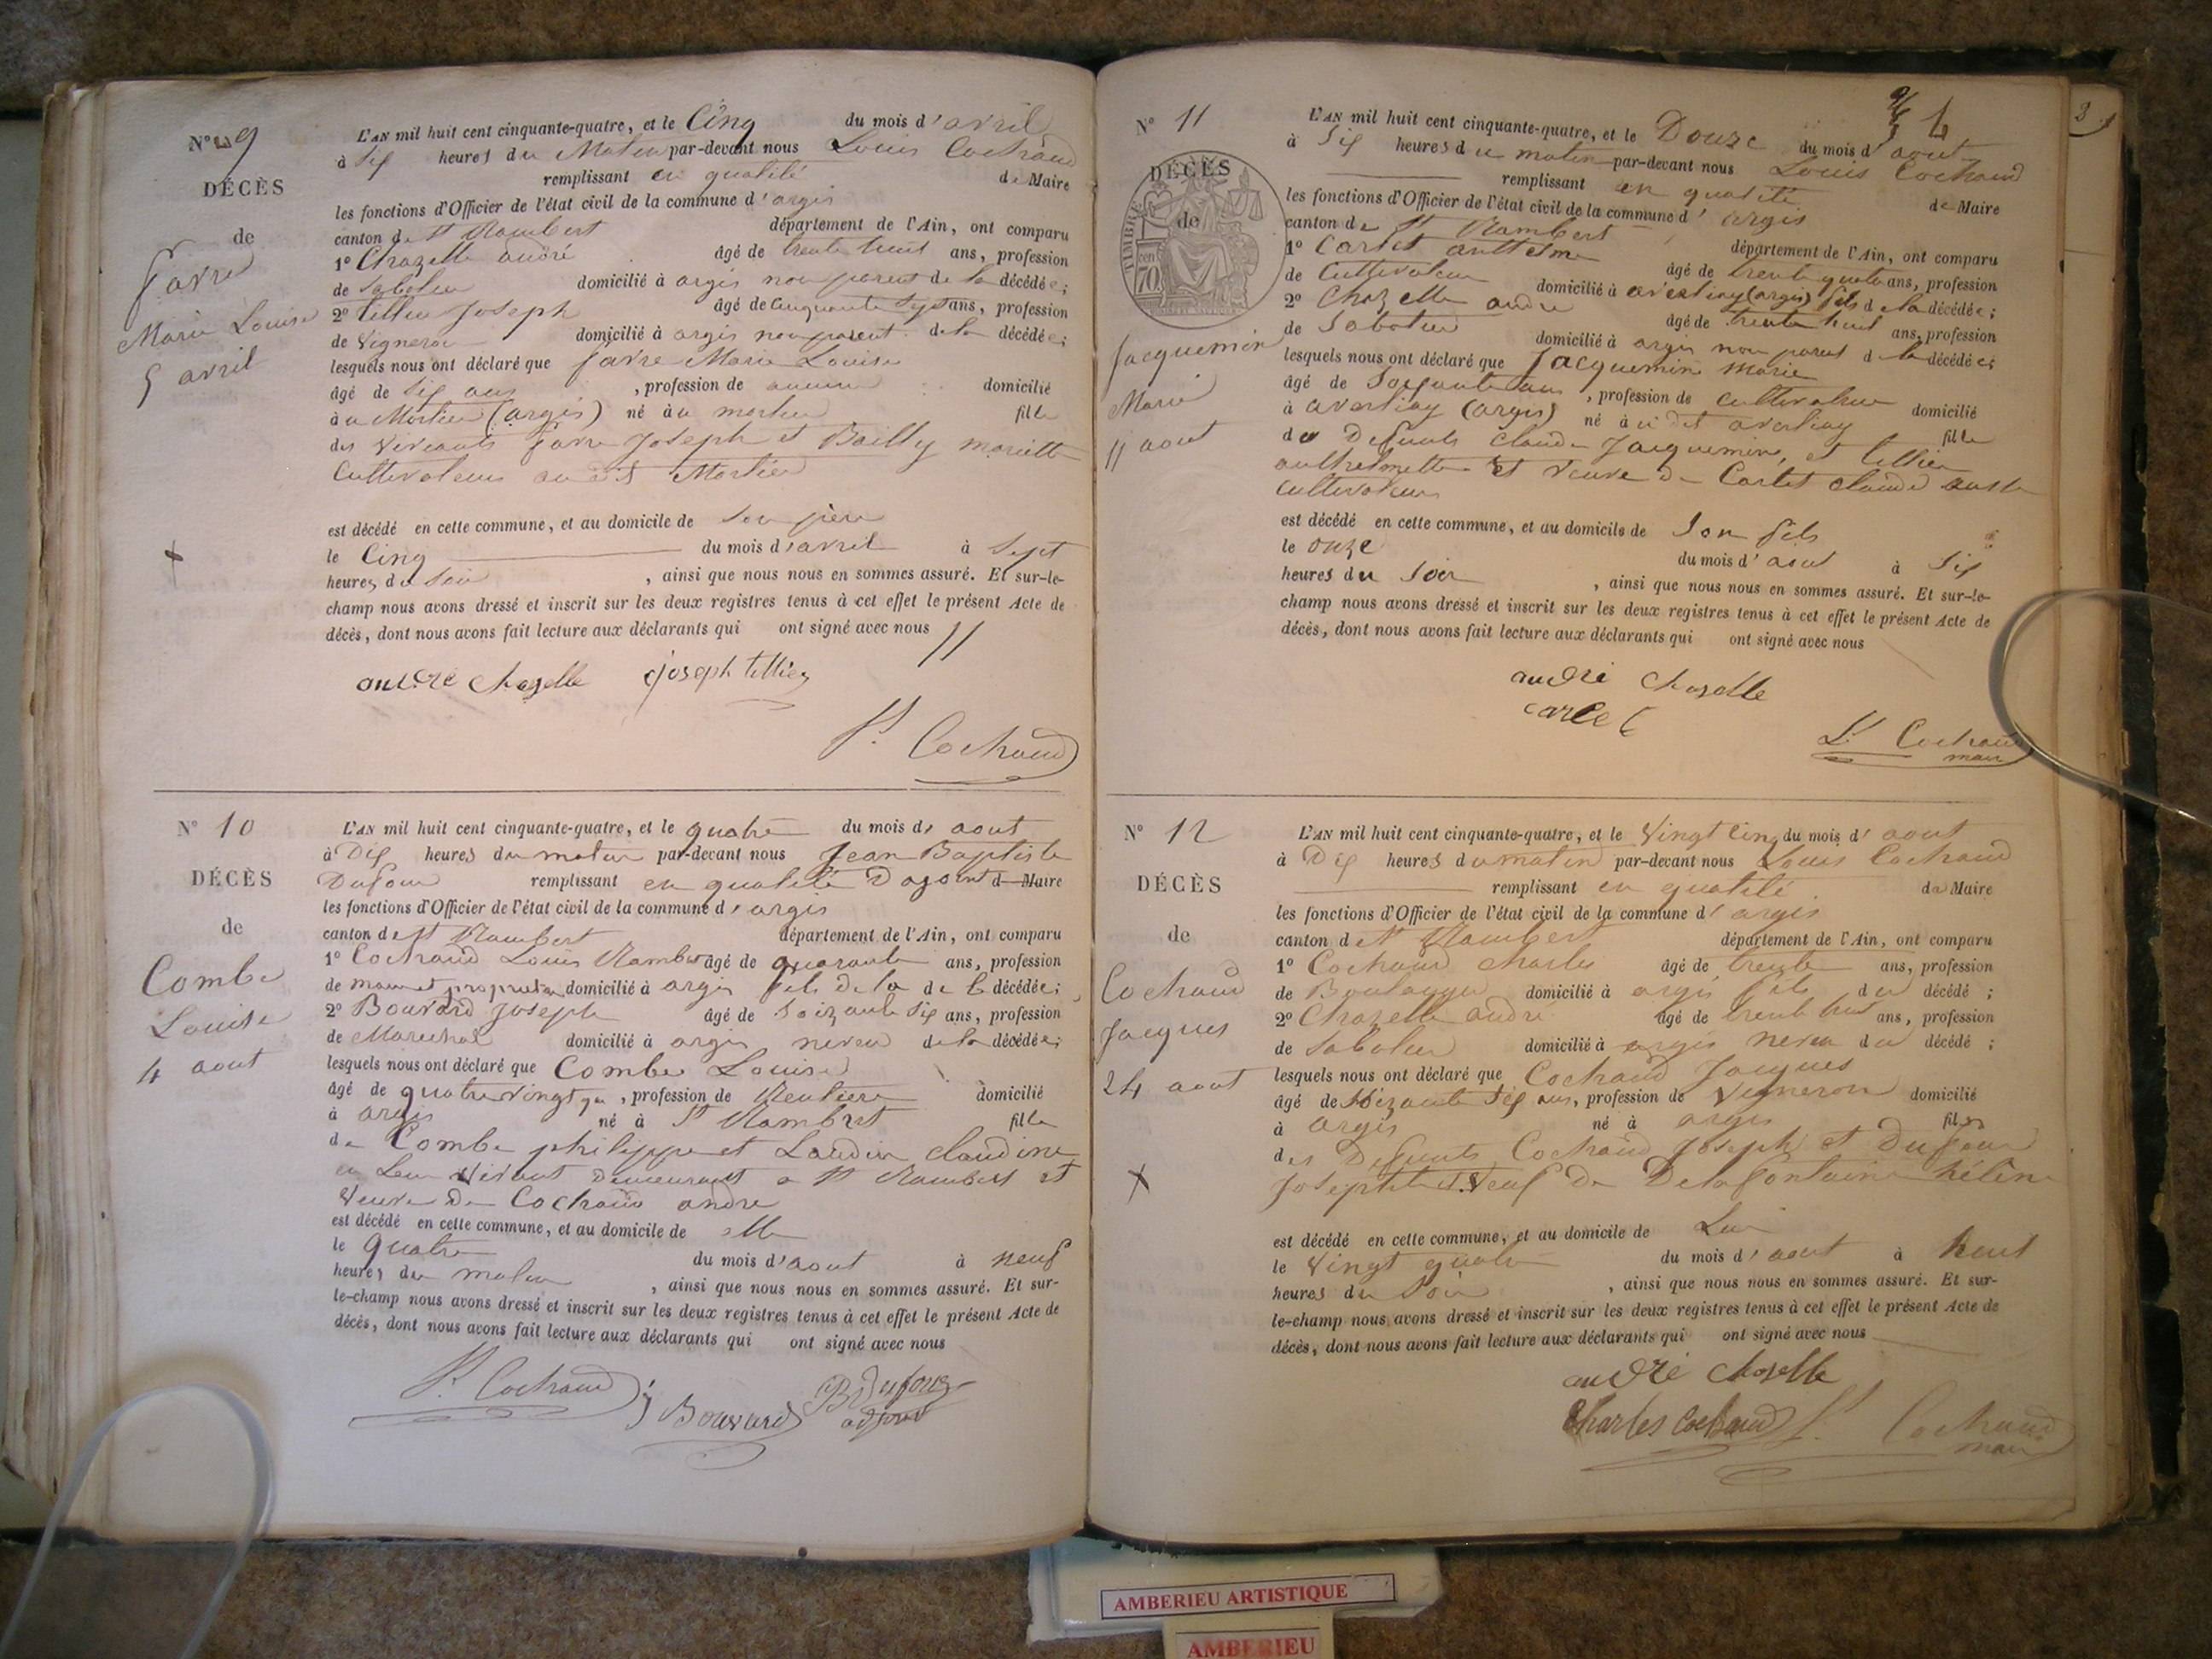 N° 9
DÉCÈS
de
favre
Marie Louise
5 avril
L'AN mil huit cent cinquante-quatre, et le Cinq du mois d'avril
à Six heures du Matin par-devant nous Louis Cochaud
remplissant en qualité de Maire
les fonctions d'Officier de l'état civil de la commune d'argis
canton de St Rambert département de l'Ain, ont comparu
1° Chazelle andré âgé de trente huit ans, profession
de Sabotier domicilié à argis non parent de la décédée;
2° tillier Joseph âgé de Cinquante ans, profession
de Vigneron domicilié à argis non parent de la décédée;
lesquels nous ont déclaré que favre Marie Louise
âgé de Six ans, profession de aucune domicilié
à au Mortier (argis) né à au mortier fille
des Vivants favre Joseph et Bailly mariette
Cultivateurs au dit Mortier
est décédé en cette commune, et au domicile de son père
le Cinq du mois d'avril à Sept
heures du Soir, ainsi que nous nous en sommes assuré. Et sur-le-
champ nous avons dressé et inscrit sur les deux registres tenus à cet effet le présent Acte de
décès, dont nous avons fait lecture aux déclarants qui ont signé avec nous
andré chazelle joseph tillier
Cochaud
N° 10
DÉCÈS
de
Combe
Louise
4 aout
L'AN mil huit cent cinquante-quatre, et le quatre du mois d'aout
à Dix heures du matin par-devant nous Jean Baptiste
Dufour remplissant en qualité D'agoint de Maire
les fonctions d'Officier de l'état civil de la commune d'argis
canton de St Rambert département de l'Ain, ont comparu
1° Cochaud Louis Rambert âgé de quarante ans, profession
de maire et propriétaire domicilié à argis fils de la de la décédée;
2° Bouvard Joseph âgé de Soixante Six ans, profession
de Marechal domicilié à argis neveu de la décédée;
lesquels nous ont déclaré que Combe Louise
âgé de quatre vingt, profession de Rentière domicilié
à argis né à St Rambert fille
de Combe philippe et Laudin claudine
en Leur Vivant Demeurant a St Rambert et
Veuve De Cochaud andre
est décédé en cette commune, et au domicile de elle
le quatre du mois d'aout à neuf
heures du matin, ainsi que nous nous en sommes assuré. Et sur-
le-champ nous avons dressé et inscrit sur les deux registres tenus à cet effet le présent Acte de
décès, dont nous avons fait lecture aux déclarants qui ont signé avec nous
Cochaud J Bouvard B Dufour
adjoint
3
N° 11
DÉCÈS
de
TIMBRE
70
Jacquemin
Marie
11 aout
L'AN mil huit cent cinquante-quatre, et le Douze du mois d'aout
à Six heures du matin par-devant nous Louis Cochaud
remplissant en qualité de Maire
les fonctions d'Officier de l'état civil de la commune d'argis
canton de St Rambert département de l'Ain, ont comparu
1° Cartet anthelme âgé de trente quatre ans, profession
de Cultivateur domicilié à averliay (argis) fils de la décédée;
2° Chazelle andre âgé de trente huit ans, profession
de Sabotier domicilié à argis non parent de la décédée;
lesquels nous ont déclaré que Jacquemin Marie
âgé de Soixante ans, profession de cultivateur domicilié
à averliay (argis) né à au dit averliay fille
de Defunts claude Jacquemin, et tillier
anthelmette et Veuve De Cartet claude aussi
Cultivateur
est décédé en cette commune, et au domicile de Son fils
le onze du mois d'aout à Six
heures du Soir, ainsi que nous nous en sommes assuré. Et sur-le-
champ nous avons dressé et inscrit sur les deux registres tenus à cet effet le présent Acte de
décès, dont nous avons fait lecture aux déclarants qui ont signé avec nous
andré chazelle
cartet
Ls Cochaud
maire
N° 12
DÉCÈS
de
Cochaud
Jacques
24 aout
L'AN mil huit cent cinquante-quatre, et le Vingt Cinq du mois d'aout
à Dix heures du matin par-devant nous Louis Cochaud
remplissant en qualité de Maire
les fonctions d'Officier de l'état civil de la commune d'argis
canton de St Rambert département de l'Ain, ont comparu
1° Cochaud charles âgé de trente ans, profession
de Boulanger domicilié à argis fils du décédé;
2° Chazelle andre âgé de trente huit ans, profession
de Sabotier domicilié à argis neveu du décédé;
lesquels nous ont déclaré que Cochaud Jacques
âgé de Soixante Six ans, profession de Vigneron domicilié
à argis né à argis fils
des Defunts Cochaud Joseph et Dufour
Josephte et Veuf De Delafontaine hélène
est décédé en cette commune, et au domicile de Lui
le Vingt quatre du mois d'aout à huit
heures du Soir, ainsi que nous nous en sommes assuré. Et sur-
le-champ nous avons dressé et inscrit sur les deux registres tenus à cet effet le présent Acte de
décès, dont nous avons fait lecture aux déclarants qui ont signé avec nous
andré chazelle
Charles Cochaud Cochaud
maire
AMBERIEU ARTISTIQUE
AMBERIEU